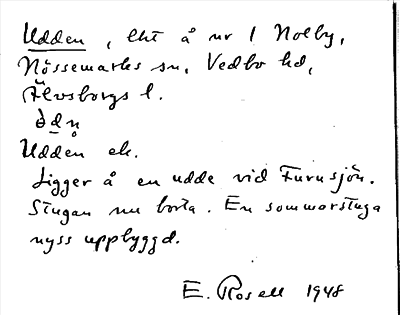 Udden, lht å nr 1 Nolby,
Nössemarks sn, Vedbo hd,
Älvsborgs l.
Udden ek.
Ligger å en udde vid Furusjön.
Stugan nu borta. En sommarstuga
nyss uppbyggd.
E. Rosell 1948